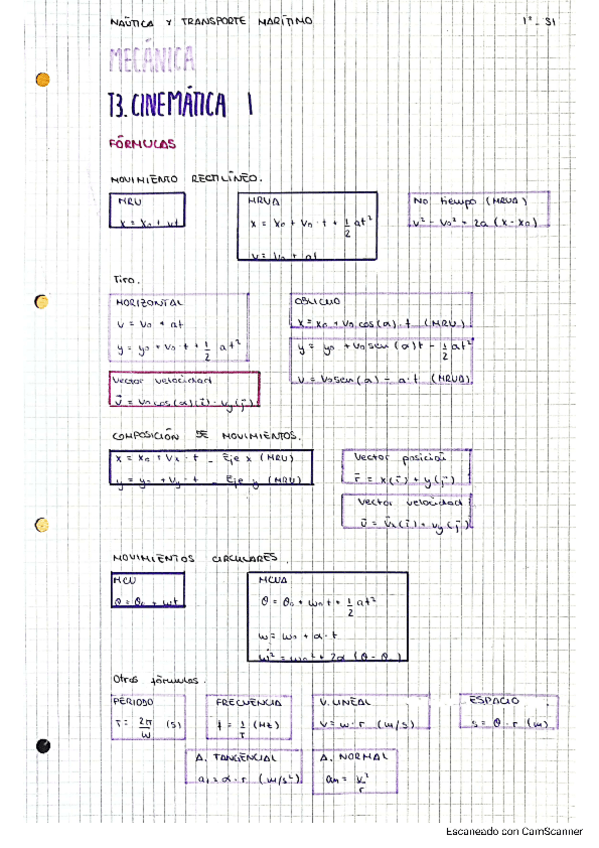 NAÚTICA Y TRANSPORTE MARÍTIMO 1º - S1
MECÁNICA
T3. CINEMÁTICA 1
FÓRMULAS
MOVIMIENTO RECTILÍNEO.
MRU
x = x₀ + vt
MRUA
x = x₀ + v₀ · t + 1/2 at²
v = v₀ + at
No tiempo (MRUA)
v² - v₀² = 2a (x - x₀)
Tiro.
HORIZONTAL
v = v₀ + at
y = y₀ + v₀ · t + 1/2 at²
OBLICUO
x = x₀ + v₀ cos(α) · t (MRU)
y = y₀ + v₀ sen(α)t - 1/2 at²
v = v₀ sen(α) - a · t (MRUA)
Vector velocidad
v̄ = v₀ cos(α)(ī) · vy(j̄)
COMPOSICIÓN DE MOVIMIENTOS.
x = x₀ + Vx · t - Eje x (MRU)
y = y₀ + Vy · t - Eje y (MRU)
Vector posición
r̄ = x(ī) + y(j̄)
Vector velocidad
v̄ = v̄x(ī) + vy(j̄)
MOVIMIENTOS CIRCULARES.
MCU
θ = θ₀ + ωt
MCUA
θ = θ₀ + ω₀ t + 1/2 αt²
ω = ω₀ + α · t
ω² = ω₀² + 2α (θ - θ₀)
Otras fórmulas.
PERIODO
T = 2π/ω (s)
FRECUENCIA
f = 1/T (Hz)
V. LINEAL
v = ω · r (m/s)
ESPACIO
s = θ · r (m)
A. TANGENCIAL
at = α · r (m/s²)
A. NORMAL
an = v²/r
Escaneado con CamScanner